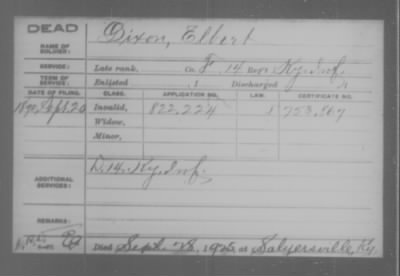 DEAD
NAME OF SOLDIER: Dixon, Elbert
SERVICE: Late rank, Co. F, 14 Reg't Ky. Inf.
TERM OF SERVICE: Enlisted , 1 Discharged , 1
DATE OF FILING. CLASS. APPLICATION NO. LAW. CERTIFICATE NO.
1890, Sept. 20 Invalid, 822,224 753,567
Widow,
Minor,
ADDITIONAL SERVICES: D. 14. Ky. Inf.
REMARKS:
Died Sept. 28, at Salyersville, Ky.